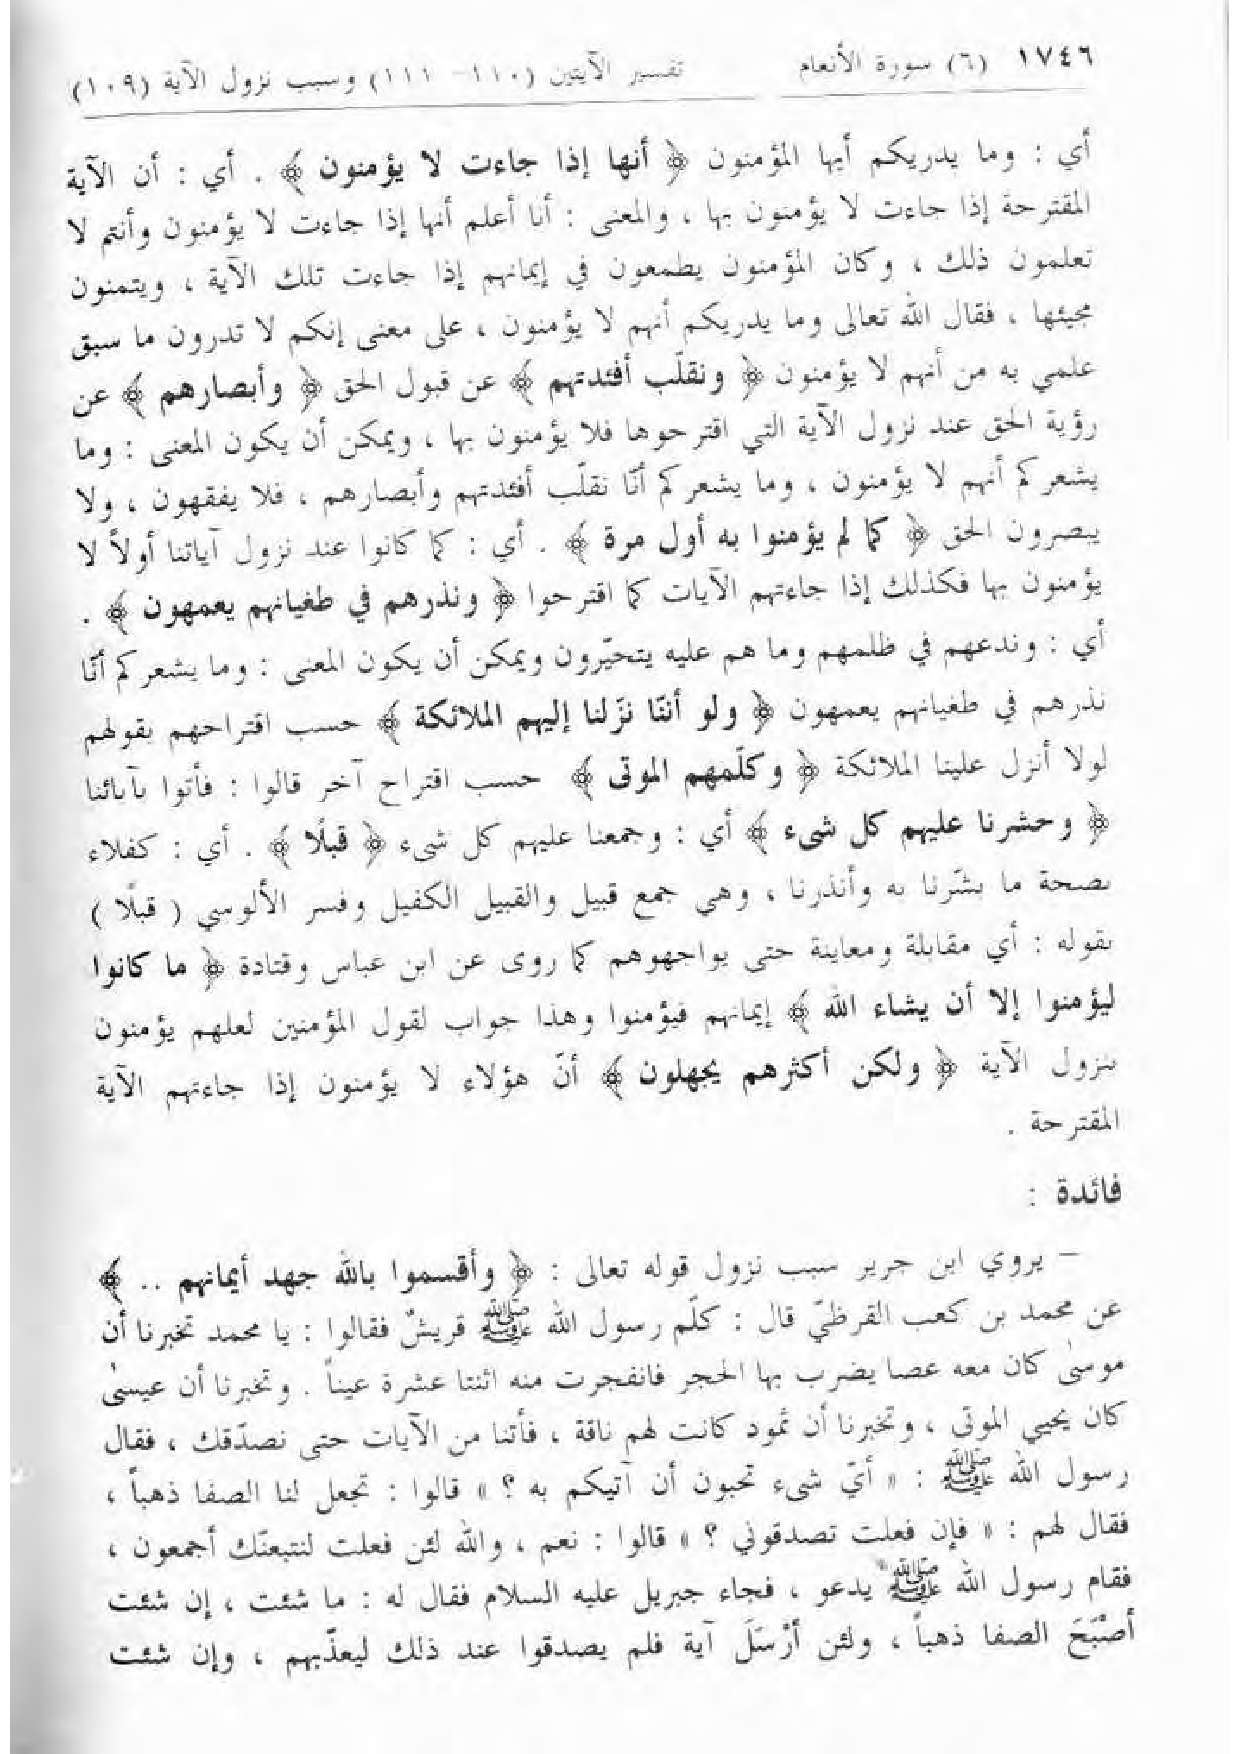 ١٧٤٦ (٦) سورة الأنعام تفسير الآيتين (١١٠ – ١١١) وسبب نزول الآية (١٠٩)
أي : وما يدريكم أيها المؤمنون ﴿ أنها إذا جاءت لا يؤمنون ﴾ . أي : أن الآية
المقترحة إذا جاءت لا يؤمنون بها ، والمعنى : أنا أعلم أنها إذا جاءت لا يؤمنون وأنتم لا
تعلمون ذلك ، وكان المؤمنون يطمعون في إيمانهم إذا جاءت تلك الآية ، ويتمنون
مجيئها ، فقال الله تعالى وما يدريكم أنهم لا يؤمنون ، على معنى إنكم لا تدرون ما سبق
علمي به من أنهم لا يؤمنون ﴿ ونقلّب أفئدتهم ﴾ عن قبول الحق ﴿ وأبصارهم ﴾ عن
رؤية الحق عند نزول الآية التي اقترحوها فلا يؤمنون بها ، ويمكن أن يكون المعنى : وما
يشعركم أنهم لا يؤمنون ، وما يشعركم أنّا نقلّب أفئدتهم وأبصارهم ، فلا يفقهون ، ولا
يبصرون الحق ﴿ كما لم يؤمنوا به أول مرة ﴾ . أي : كما كانوا عند نزول آياتنا أولاً لا
يؤمنون بها فكذلك إذا جاءتهم الآيات كما اقترحوا ﴿ ونذرهم في طغيانهم يعمهون ﴾ .
أي : وندعهم في ظلمهم وما هم عليه يتحيّرون ويمكن أن يكون المعنى : وما يشعركم أنّا
نذرهم في طغيانهم يعمهون ﴿ ولو أننّا نزّلنا إليهم الملائكة ﴾ حسب اقتراحهم بقولهم
لولا أنزل علينا الملائكة ﴿ وكلّمهم الموتى ﴾ حسب اقتراح آخر قالوا : فأتوا بآبائنا
﴿ وحشرنا عليهم كل شيء ﴾ أي : وجمعنا عليهم كل شيء ﴿ قبلًا ﴾ . أي : كفلاء
بصحة ما بشّرنا به وأنذرنا ، وهي جمع قبيل والقبيل الكفيل وفسر الألوسي ( قبلًا )
بقوله : أي مقابلة ومعاينة حتى يواجهوهم كما روى عن ابن عباس وقتادة ﴿ ما كانوا
ليؤمنوا إلا أن يشاء الله ﴾ إيمانهم فيؤمنوا وهذا جواب لقول المؤمنين لعلهم يؤمنون
بنزول الآية ﴿ ولكن أكثرهم يجهلون ﴾ أنّ هؤلاء لا يؤمنون إذا جاءتهم الآية
المقترحة .
فائدة :
– يروي ابن جرير سبب نزول قوله تعالى : ﴿ وأقسموا بالله جهد أيمانهم .. ﴾
عن محمد بن كعب القرظيّ قال : كلّم رسول الله ﷺ قريشٌ فقالوا : يا محمد تخبرنا أن
موسىٰ كان معه عصا يضرب بها الحجر فانفجرت منه اثنتا عشرة عيناً . وتخبرنا أن عيسىٰ
كان يحيي الموتى ، وتخبرنا أن ثمود كانت لهم ناقة ، فأتنا من الآيات حتى نصدّقك ، فقال
رسول الله ﷺ : « أيّ شيء تحبون أن آتيكم به ؟ » قالوا : تجعل لنا الصفا ذهباً ،
فقال لهم : « فإن فعلت تصدقوني ؟ » قالوا : نعم ، والله لئن فعلت لنتبعنّك أجمعون ،
فقام رسول الله ﷺ يدعو ، فجاء جبريل عليه السلام فقال له : ما شئت ، إن شئت
أصْبَحَ الصفا ذهباً ، ولئن أرْسَلَ آية فلم يصدقوا عند ذلك ليعذّبهم ، وإن شئت